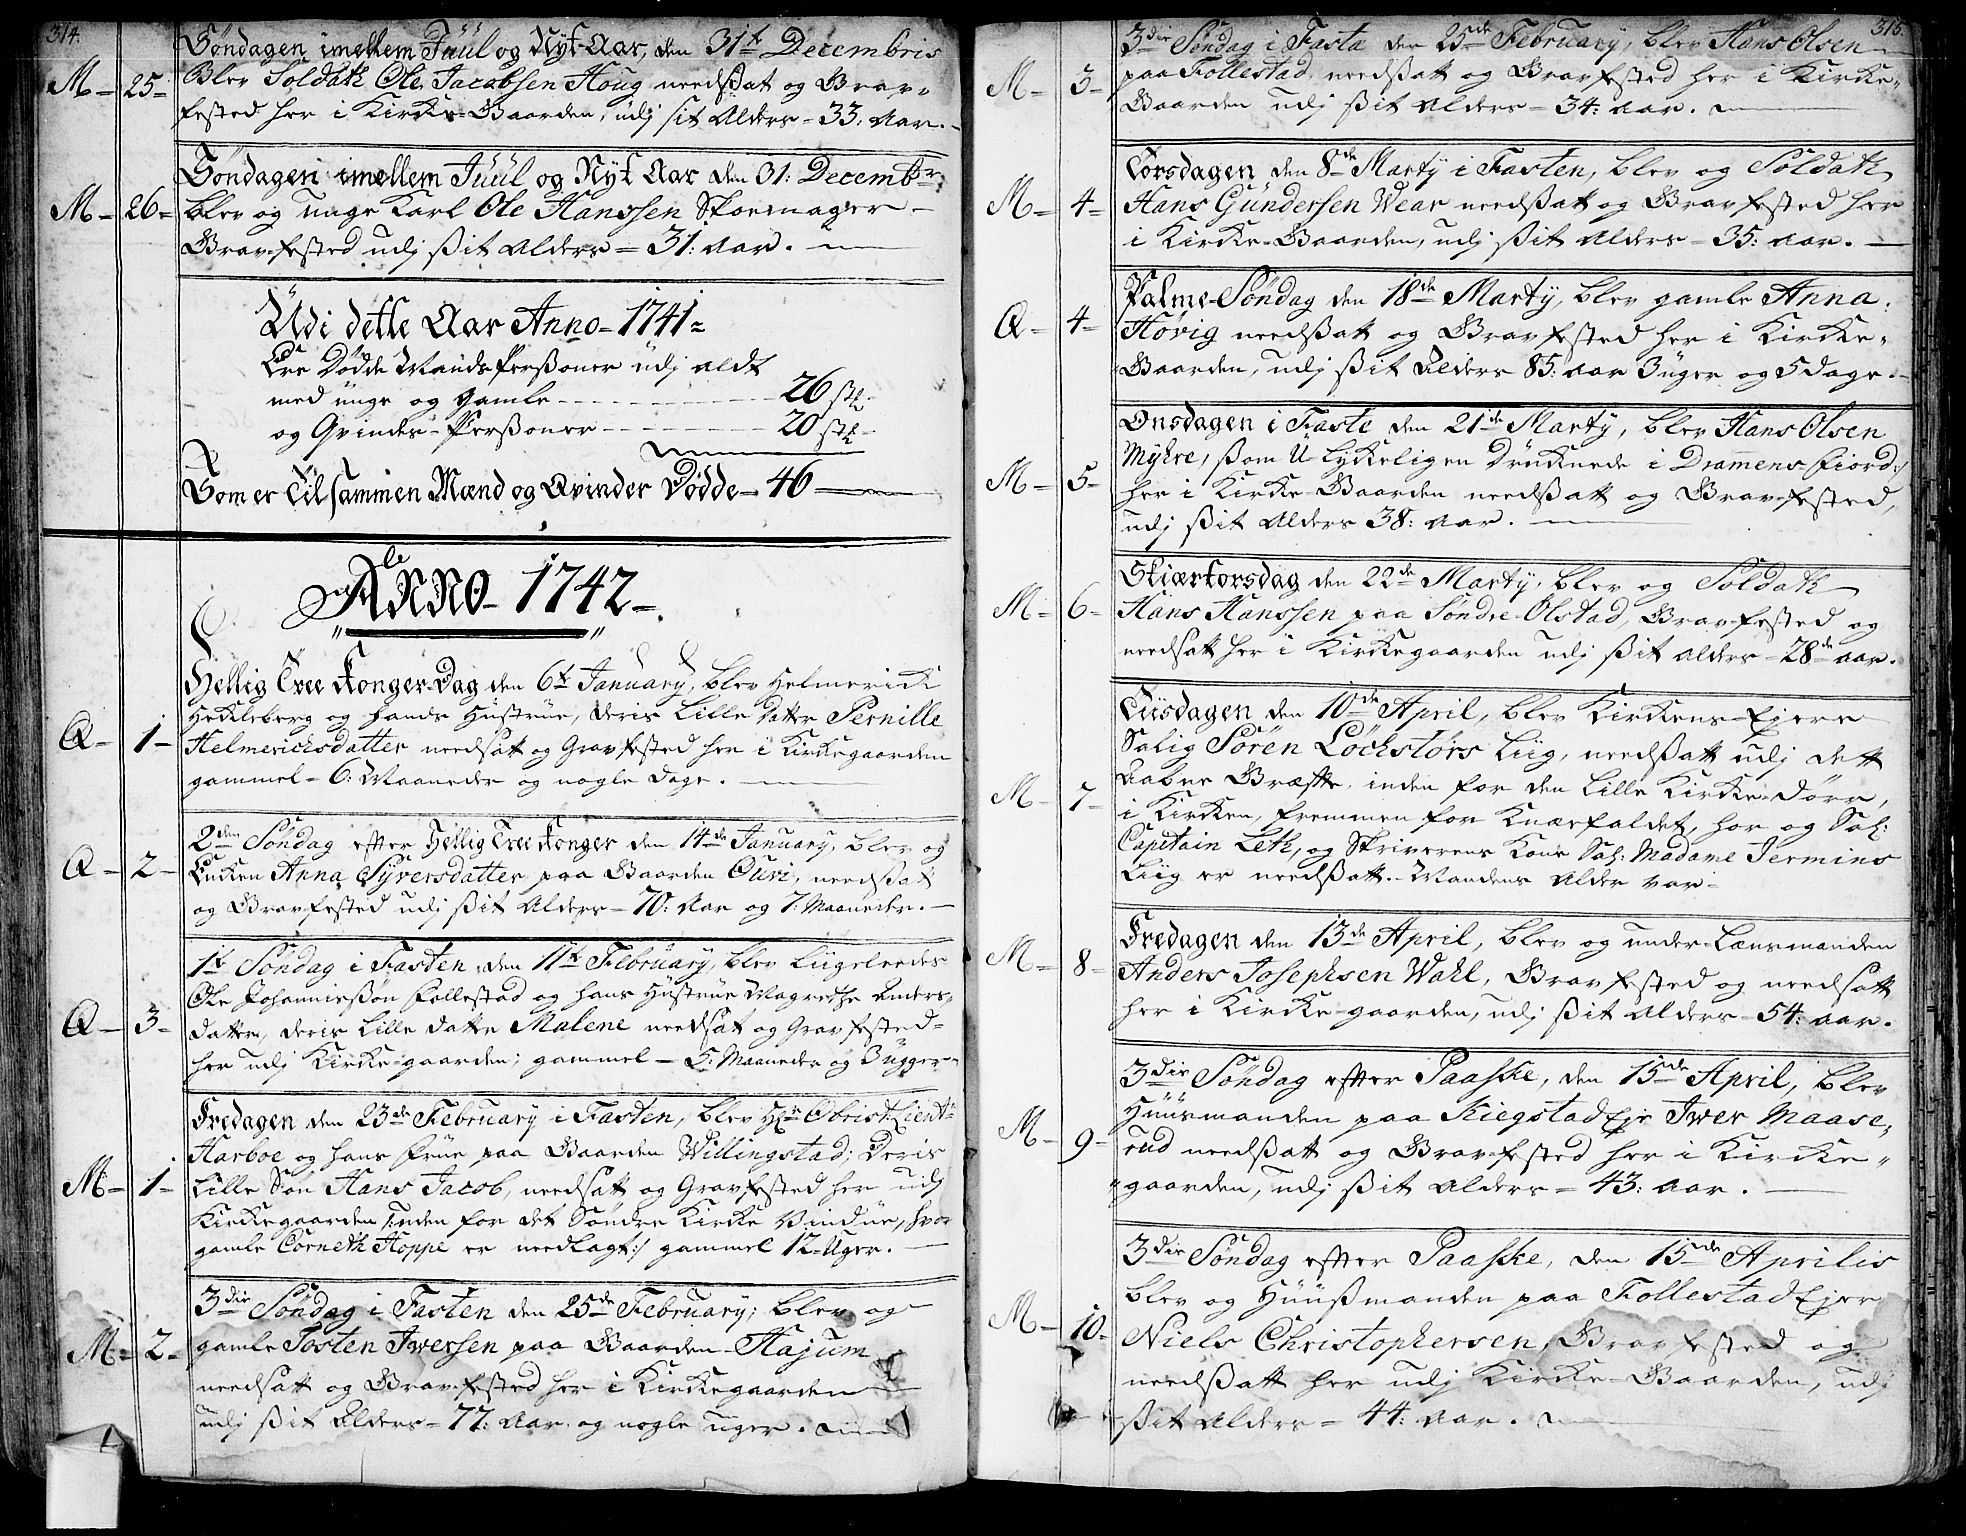 314.
Søndagen imellem Juul og Nyt-Aar, den 31te Decembris
M - 25 - Blev Soldath Ole Jacobsen Houg needßat og Grav-
fested her i Kirke-Gaarden, udj sit Alders - 33. Aar.
Søndagen imellem Juul og Nyt Aar den 31: Decembr:
M - 26 - blev og unge Karl Ole Hanssen Skoemager
Gravfested udj ßit Alders - 31: Aar.
Udi dette Aar Anno - 1741 -
Ere Døde Mands Perßoner udj aldt
med unge og gamle - 26 stk
og Qvindes-Perßoner - 20 stk
Som er Tilsammen Mænd og Qvinder Dødde - 46
Anno - 1742 -
Hellig Tree Konger-Dag den 6te January, blev Helmerick
Hekleberg og hands Hustrue, deris Lille datter Pernille
Q - 1 - Helmerichsdatter needsatt og Gravfested her i Kirkegaarden
gammel - 6: Maaneder og nogle dage.
2den Søndag efter Hellig Tree Konger den 14de January, blev og
Q - 2 - Enken Anna Syversdatter paa Gaarden Ouri, needßatt
og Gravfested udj ßit Alders - 70: Aar og 7: Maaneder.
1te Søndag i Fasten, den 11te February, blev Liigeleedes
Ole Johannisßøn Follestad og hans Hustrue Magrethe Anders-
Q - 3 - datter, deris Lille datter Malene needsat og Gravfested
her udj Kirke-gaarden; gammel - 5: Maaneder og 3 ugger
Fredagen den 23de February i Fasten, blev Hr: Obrist Lient:
Harboe og hans Frue paa Gaarden Willingstad; Deris
M - 1 - Lille Søn Hans Jacob, needsatt og Gravfested her udj
Kirkegaarden inden for det Søndre Kirke Vindue, hvor
gamle Corneth Hoppe er needlagt:/ gammel 12 - Uger.
3die Søndag i Fasten den 25de February; blev og
M - 2 - gamle Tosten Iwersen paa Gaarden Hajum
needsatt og Gravfested her i Kirkegaarden
udj ßit Alders - 77: Aar og nogle uger.
315.
3die Søndag i Fasta den 25de February, blev Hans Olsen
M - 3 - paa Follestad, needßatt og Gravfested her i Kirke-
Gaarden udj ßit Alders - 34: Aar.
Torsdagen den 8de Marty i Fasten, blev og Soldath
M - 4 - Hans Gundersen Wear needßatt og Gravfested her
i Kirke-Gaarden, udj ßit Alders - 35: Aar.
Palme-Søndag den 18de Marty, blev gamle Anna
Q - 4 - Høvig needßatt og Gravfested her i Kirke-
Gaarden, udj ßit Alders 85: Aar 3 uger og 5 dage.
Onsdagen i Faste den 21de Marty, blev Hans Olsen
Myhre, ßom U-lykkeligen Druknede i Dramens-fiord:/
M - 5 - her i Kirke-Gaarden needßatt og Gravfested,
udj ßit Alders 38: Aar.
Skiærtorsdag den 22de Marty, blev og Soldath
M - 6 - Hans Hanssen paa Søndre-Olstad, Gravfested og
needsatt her i Kirkegaarden udj ßit Alders - 28de Aar.
Tiisdagen den 10de April, blev Kirkens-Ejere
Salig Søren Løchstørs Liig, needßatt udj dett
Aabne Græftte, inden for den Lille Kirke-Dørr,
M - 7 - i Kirken, fremmen for Knæefaldet, hor og Sal:
Capitain Leth, og Skriverens Kone Sal: Madame Jermins
Liig er needßatt. Mandens Alder var -
Fredagen den 13de April, blev og under-Lænsmanden
M - 8 - Anders Josephsen Wahl, Gravfested og needsatt
her i Kirke-gaarden, udj ßit Alders - 54: Aar.
3die Søndag efter Paaske, den 15de April, blev
Huusmanden paa Kiegstad Ejr Iwer Maase-
M - 9 - rud needßatt og Gravfested her i Kirke-
gaarden, udj ßit Alders - 43: Aar.
3die Søndag efter Paaske, den 15de Aprilis
blev og Huußmanden paa Follestad Ejer
M - 10 - Niels Christophersen, Gravfested og
needßatt her udj Kirke-Gaarden, udj
ßit Alders - 44: Aar.